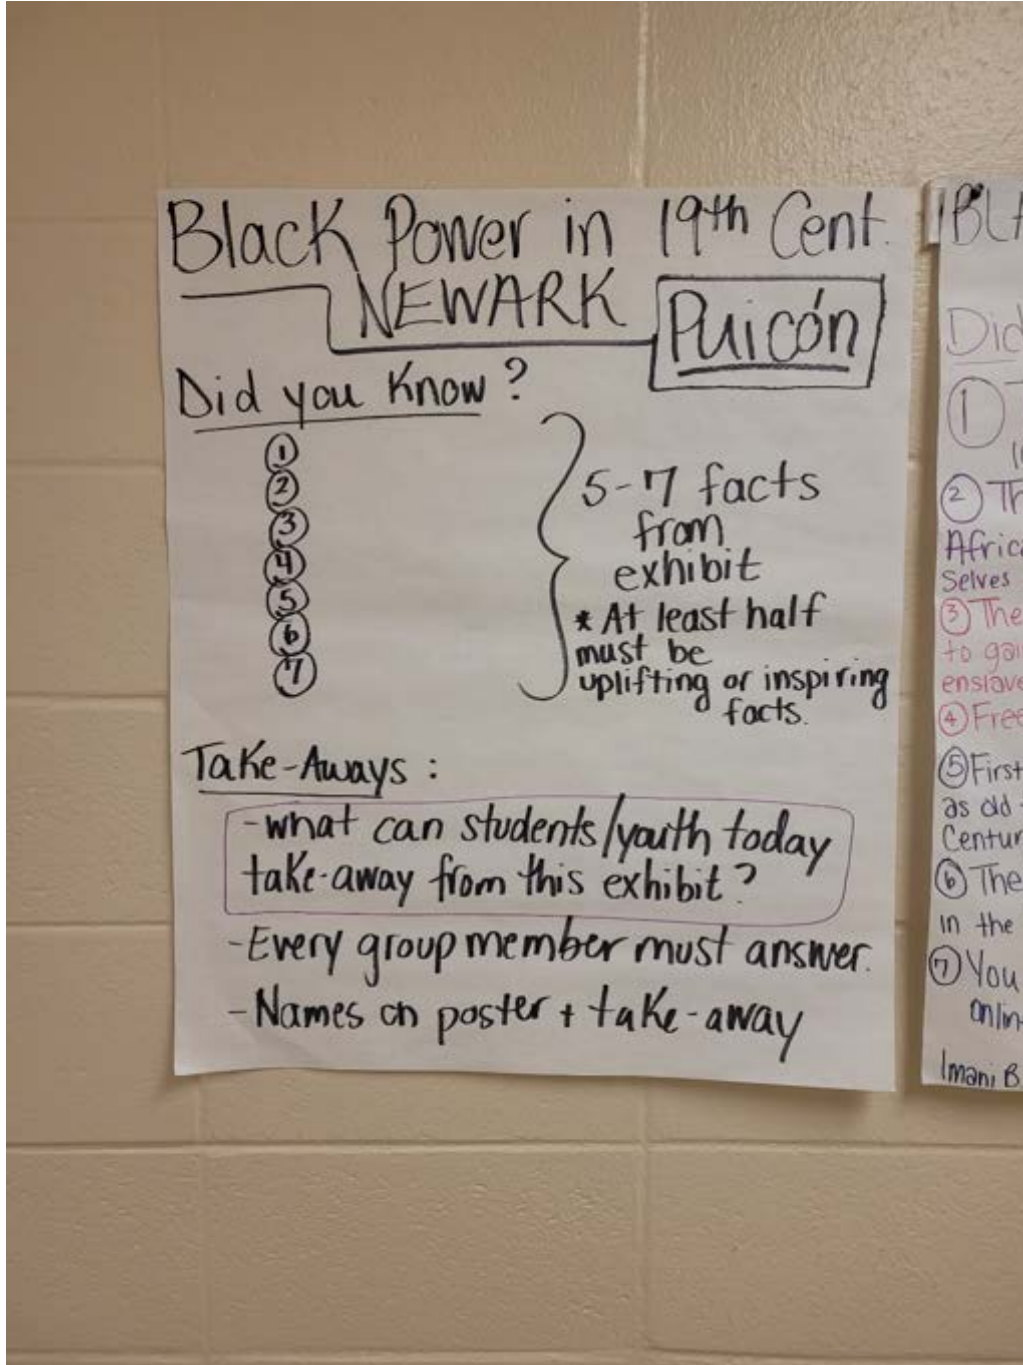 Black Power in 19th Cent.
NEWARK
Puicón
Did you Know?
1
2
3
4
5
6
7
5-7 facts
from
exhibit
* At least half
must be
uplifting or inspiring
facts.
Take-Aways:
-what can students/youth today
take-away from this exhibit?
-Every group member must answer.
-Names on poster + take-away
Did
1
2
Africa
Selves
3 The
to gai
enslave
4 Free
5 First
as old
Centur
6 The
in the
7 You
onlin
Imani B